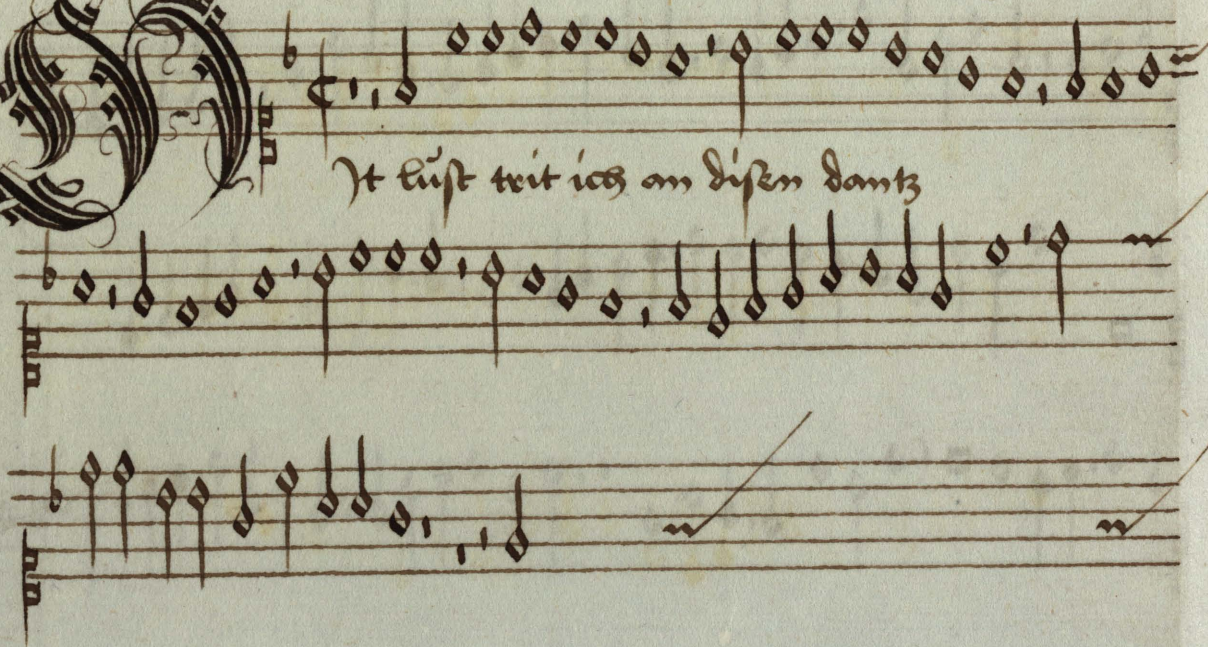 Mit lust trit ich an disen dantz